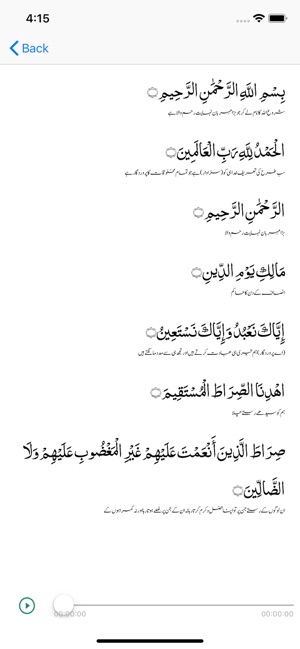 4:15
Back
بِسْمِ اللَّهِ الرَّحْمَٰنِ الرَّحِيمِ ۝
شروع الله کا نام لے کر جو بڑا مہربان نہایت رحم والا ہے
الْحَمْدُ لِلَّهِ رَبِّ الْعَالَمِينَ ۝
سب طرح کی تعریف خدا ہی کو (سزاوار) ہے جو تمام مخلوقات کا پروردگار ہے
الرَّحْمَٰنِ الرَّحِيمِ ۝
بڑا مہربان نہایت رحم والا
مَالِكِ يَوْمِ الدِّينِ ۝
انصاف کے دن کا حاکم
إِيَّاكَ نَعْبُدُ وَإِيَّاكَ نَسْتَعِينُ ۝
(اے پروردگار) ہم تیری ہی عبادت کرتے ہیں اور تجھ ہی سے مدد مانگتے ہیں
اهْدِنَا الصِّرَاطَ الْمُسْتَقِيمَ ۝
ہم کو سیدھے رستے چلا
صِرَاطَ الَّذِينَ أَنْعَمْتَ عَلَيْهِمْ غَيْرِ الْمَغْضُوبِ عَلَيْهِمْ وَلَا
الضَّالِّينَ ۝
ان لوگوں کے رستے جن پر تو اپنا فضل و کرم کرتا رہا نہ ان کے جن پر غصے ہوتا رہا اور نہ گمراہوں کے
00:00:00
00:00:00